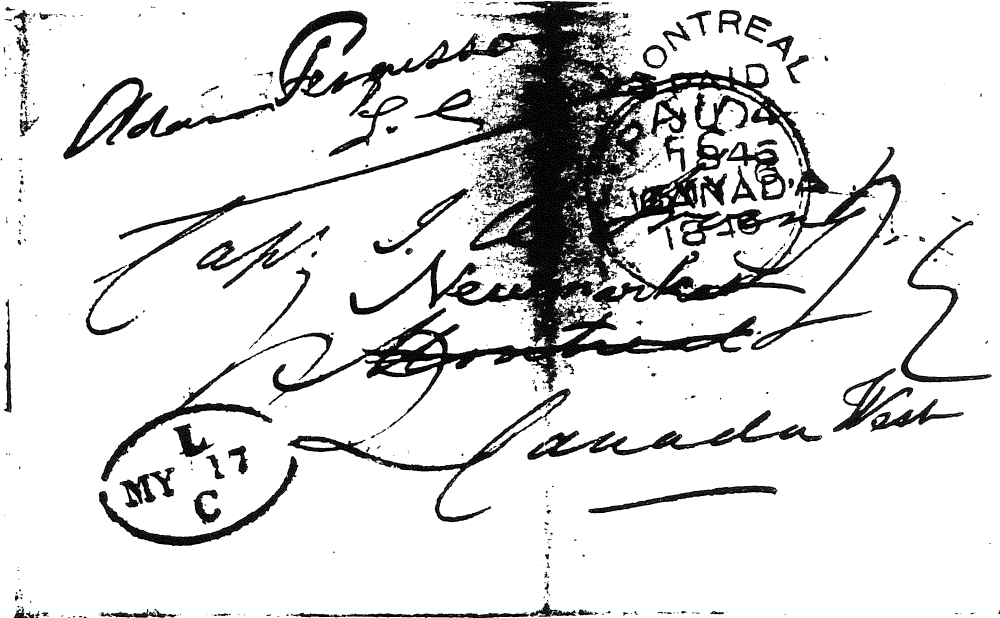 Adam Fergusson
L. C.
MONTREAL
PAID
AU 24
1846
CANADA
1846
Capt. I.
Newmarket
Montreal
Canada West
L
MY 17
C